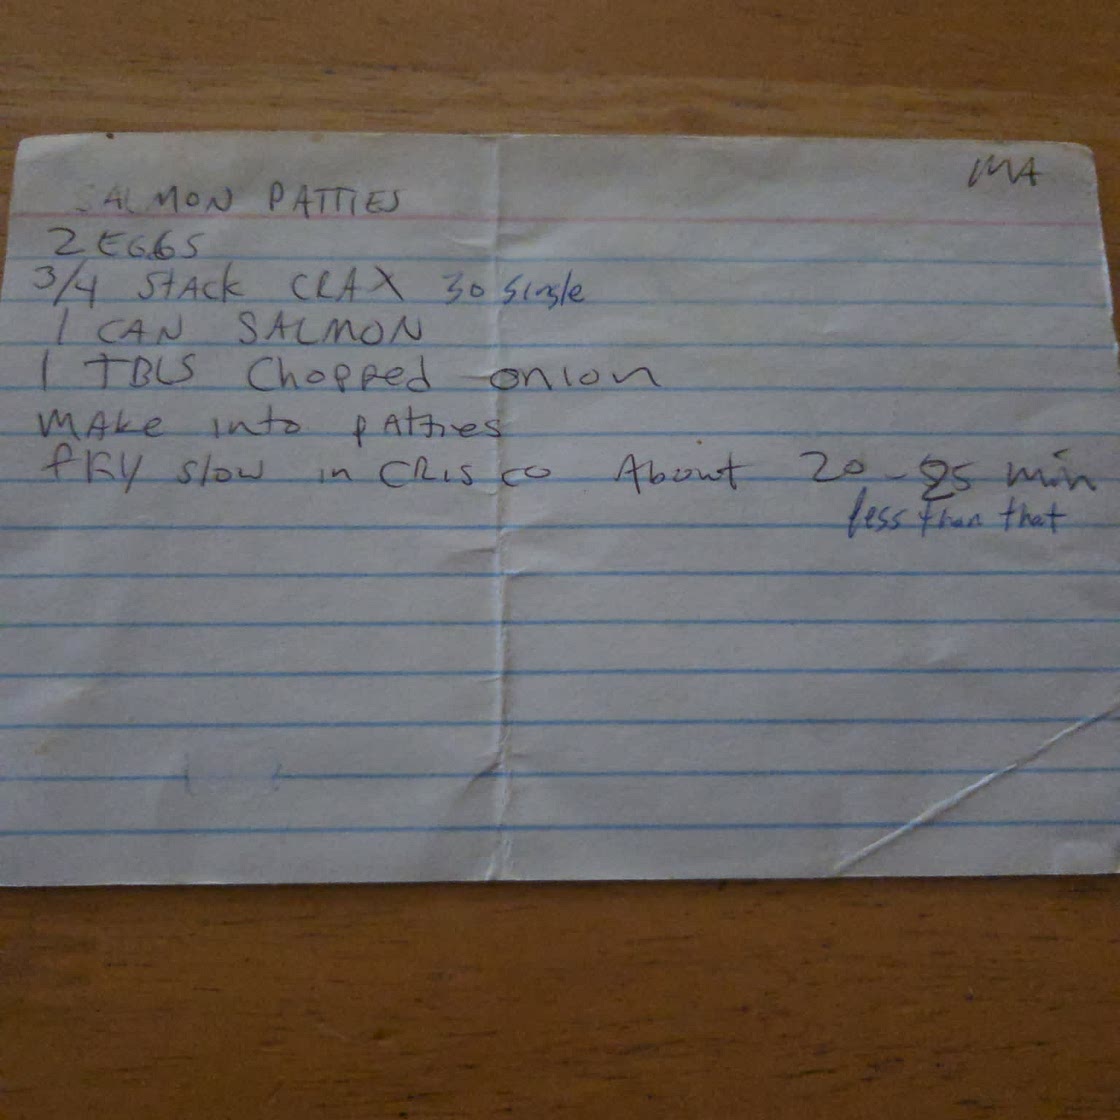 MA
SALMON PATTIES
2 EGGS
3/4 STACK CRAX 30 single
1 CAN SALMON
1 TBLS Chopped onion
MAKE into pAtties
fRY slow in CRISCO About 20-25 min
less than that